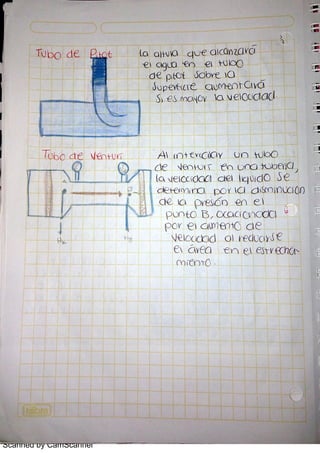 Tubo de Pitot
la altura que alcanzará
el agua en el tubo
de pitot sobre la
superficie aumentará
si es mayor la velocidad
Tubo de Venturi
Al intercalar un tubo
de venturi en una tubería,
la velocidad del líquido se
determina por la disminución
de la presión en el
punto B, ocacionada
por el aumento de
velocidad al reducirse
el área en el estrecha-
miento.
Scanned by CamScanner